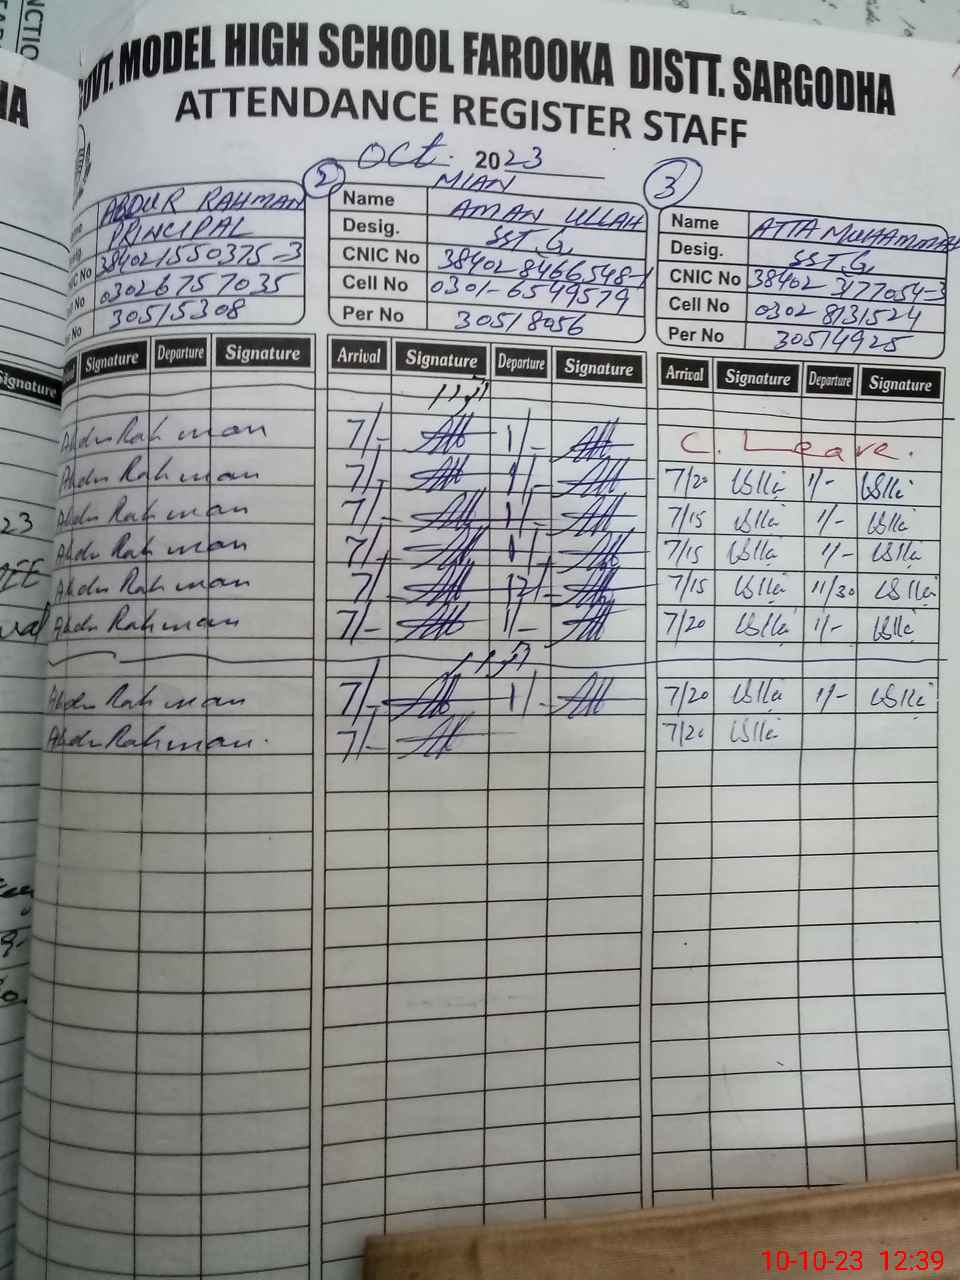 GOVT. MODEL HIGH SCHOOL FAROOKA DISTT. SARGODHA
ATTENDANCE REGISTER STAFF
Oct. 2023
ABDUR RAHMAN
PRINCIPAL
CNIC No 3840215550375-3
03026757035
30515308
2
Name MIAN AMAN ULLAH
Desig. SST.G
CNIC No 384028466548-1
Cell No 0301-6549579
Per No 30518056
3
Name ATTA MUHAMMAD
Desig. SST.G
CNIC No 38402 3177054-3
Cell No 0302 8131524
Per No 30514925
Signature Departure Signature Arrival Signature Departure Signature Arrival Signature Departure Signature
Abdur Rahman 7/- 1/- C. Leave.
Abdur Rahman 7/- 1/- 7/20 1/-
Abdur Rahman 7/- 1/- 7/15 1/-
Abdur Rahman 7/- 1/- 7/15 1/-
Abdur Rahman 7/- 12/- 7/15 11/30
Abdur Rahman 7/- 1/- 7/20 1/-
Abdur Rahman 7/- 1/- 7/20 1/-
Abdur Rahman. 7/- 7/20
Signature
23
10-10-23 12:39